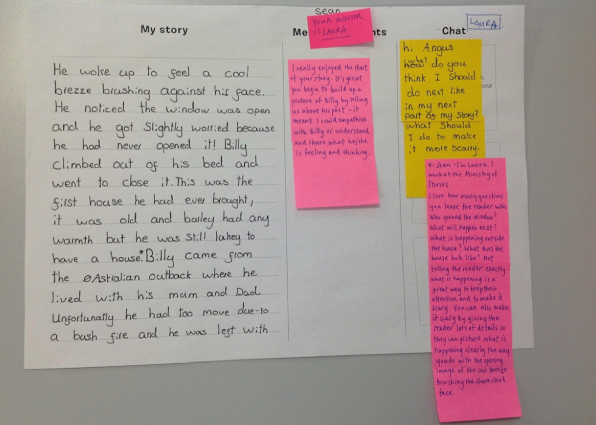 Sean
My story
He woke up to feel a cool
brezze brushing against his face.
He noticed the window was open
and he got slightly worried because
he had never opened it! Billy
climbed out of his bed and
went to close it. This was the
first house he had ever brought,
it was old and barley had any
warmth but he was still lukey to
have a house* Billy came from
the Astralian outback where he
lived with his mum and Dad.
Unfortunatly he had too move due to
a bush fire and he was left with
YOUR MENTOR
IS LAURA
I really enjoyed the start
of your story. It's great
you begin to build up a
picture of Billy by telling
us about his past - it
meant I could empathise
with Billy or understand
and share what he/she
is feeling and thinking.
Chat
LAURA
hi Angus
what do you
think I should
do next like
in my next
part of my story?
what should
I do to make
it more scary.
Hi Sean - I'm Laura. I
work at the Ministry of
Stories.
I love how many questions
you leave the reader with
Who opened the window?
What will happen next?
What is happening outside
the house? What does the
house look like? Not
telling the reader exactly
what is happening is a
great way to keep their
attention and to make it
scary. You can also make
it scary by giving the
reader lots of details so
they can picture what is
happening clearly the way
you do with the opening
image of the cool breeze
brushing the character's
face.